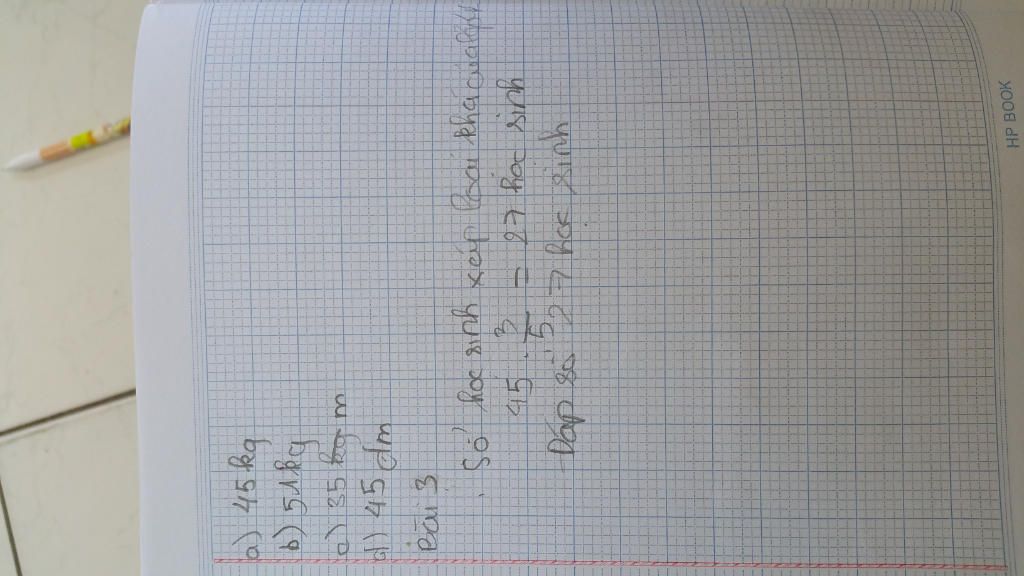 a) 45kg
b) 51kg
c) 35 kg m
d) 45 dm
Bài 3
Số học sinh xếp loại khá của lớp
45 . 3/5 = 27 học sinh
Đáp số 27 học sinh
HP BOOK